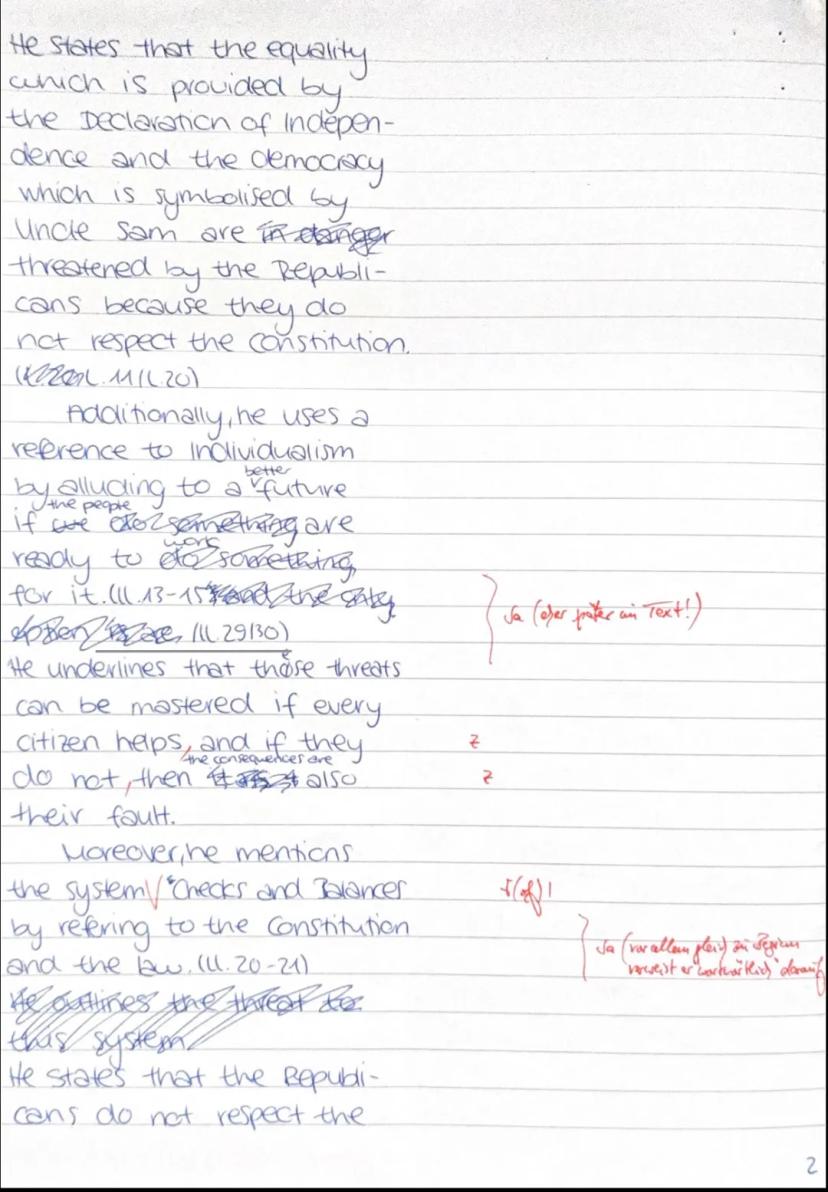 He states that the equality
which is provided by
the Declaration of Indepen-
dence and the democracy
which is symbolised by
Uncle Sam are in danger
threatened by the Republi-
cans because they do
not respect the Constitution.
(l. 11/l. 20)
Additionally, he uses a
reference to Individualism
better
by alluding to a future
the people
if we do something are
work
ready to do something
for it. (ll. 13-15
(ll. 29/30)
He underlines that those threats
can be mastered if every
citizen helps, and if they
z
the consequences are
do not, then also
z
their fault.
Moreover, he mentions
the system √ "Checks and Balances
f(of)!
by refering to the Constitution
and the law. (ll. 20-21)
Ja (vor allem gleich zu Beginn
verweist er wortwörtlich darauf
He outlines the threat to
this system
He states that the Republi-
cans do not respect the
Ja (eher später im Text!)
2